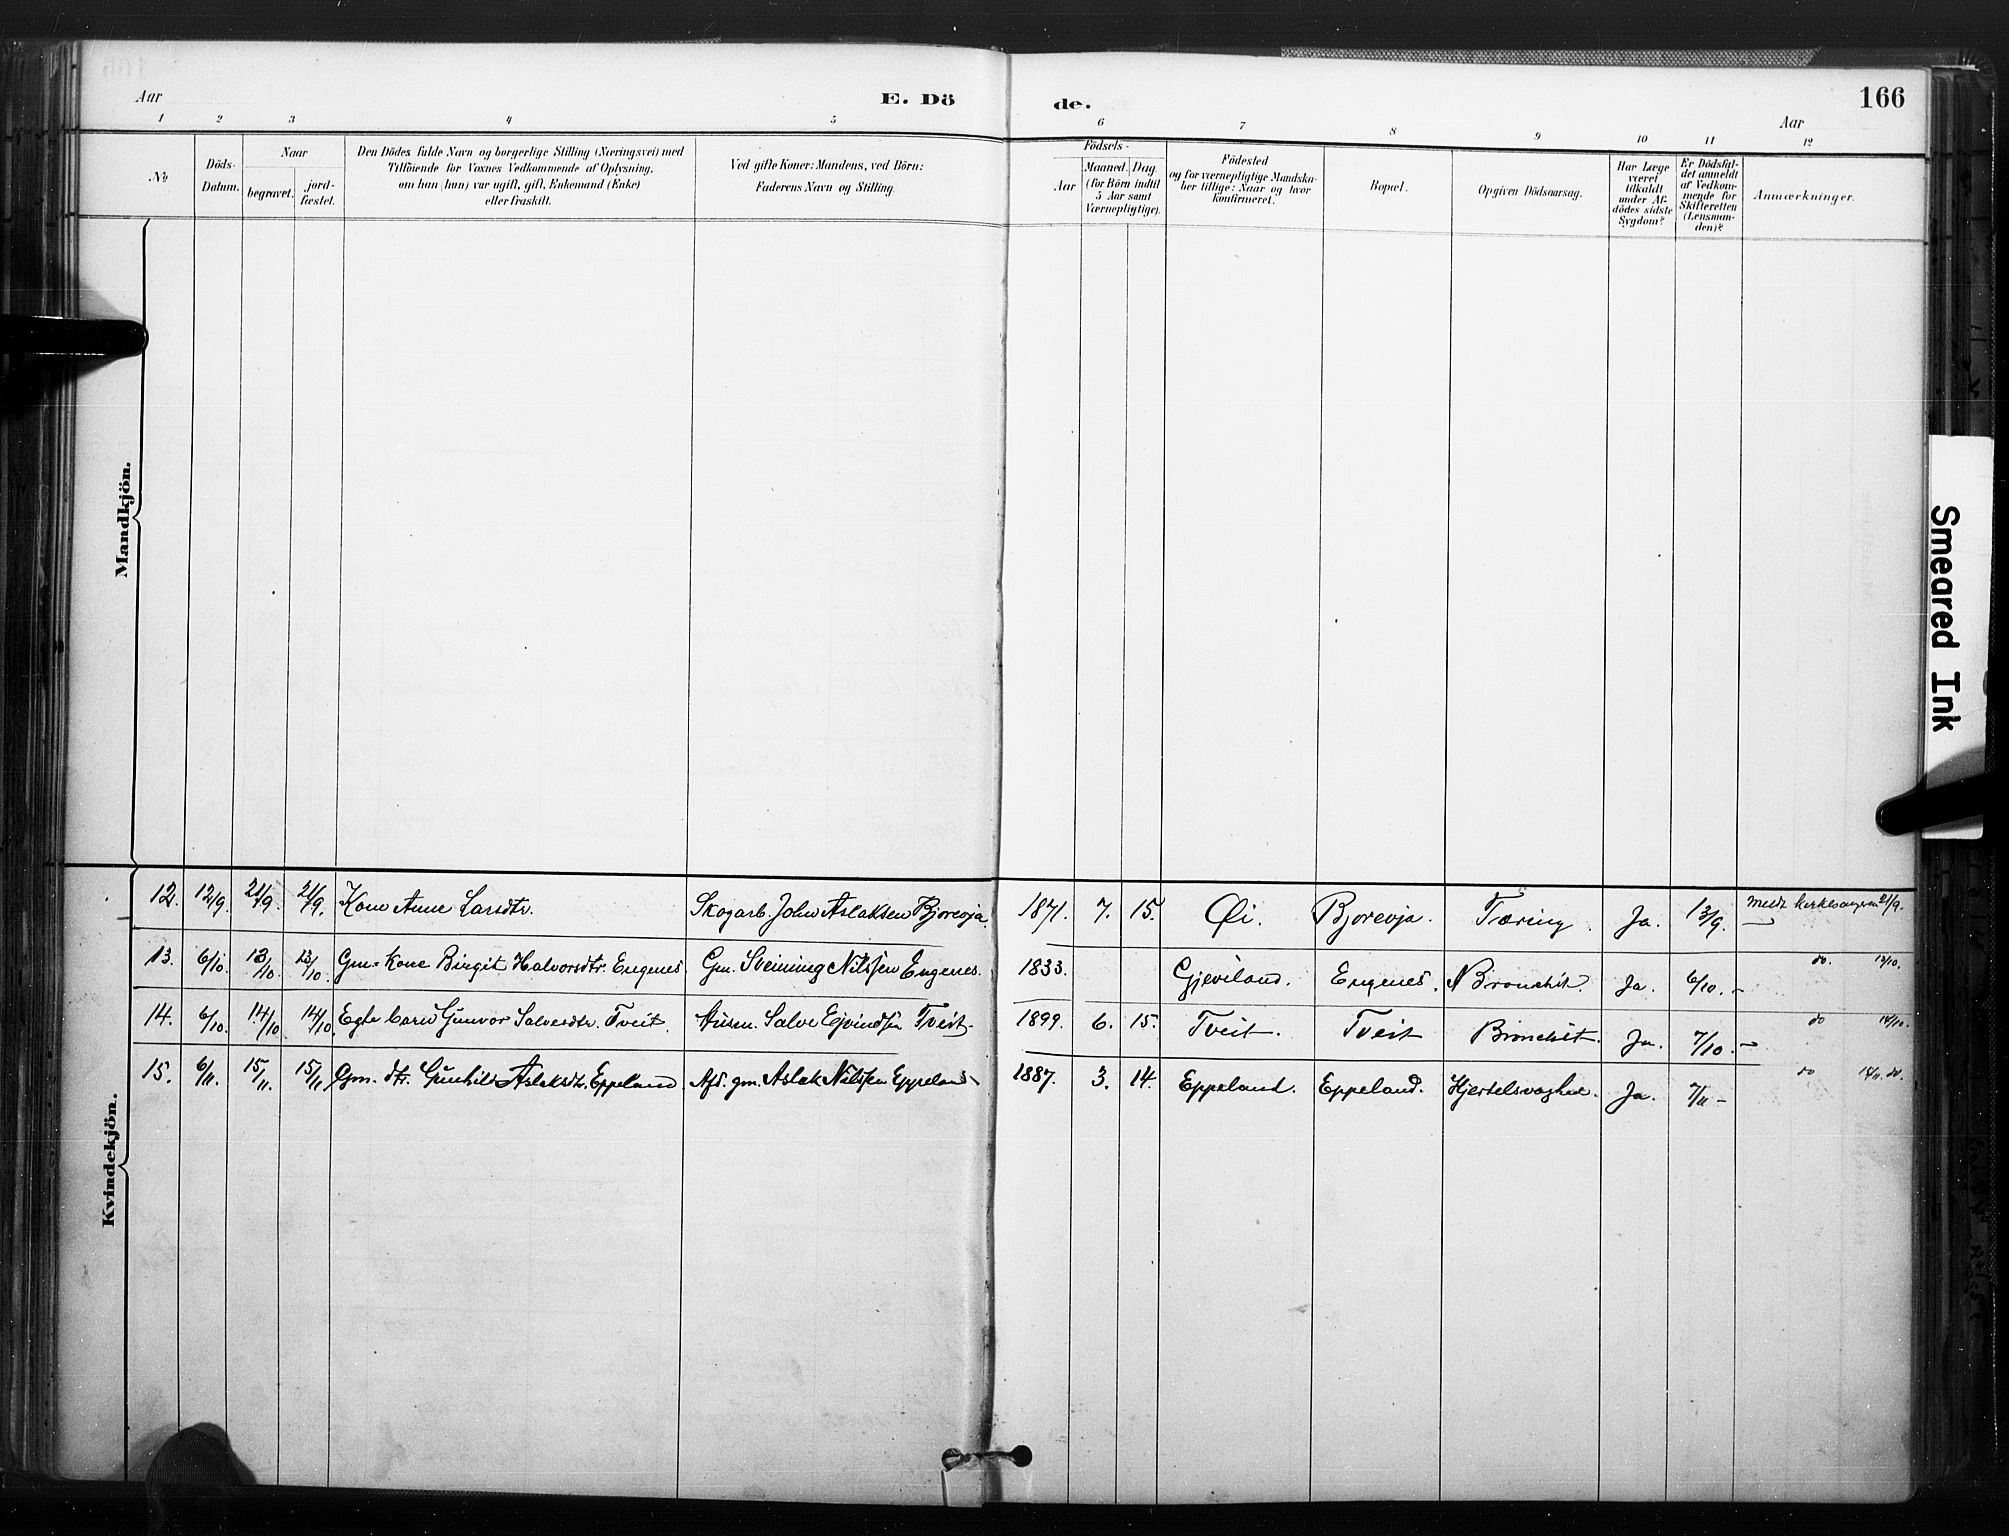 166
Aar
E. Dö
de.
Aar
1 2 3 4 5 6 7 8 9 10 11 12
No
Döds-
Datum.
Naar
begravet.
jord-
fæstet.
Den Dödes fulde Navn og borgerlige Stilling (Næringsvei) med
Tilföiende for Voxnes Vedkommende af Oplysning,
om han (hun) var ugift, gift, Enkemand (Enke)
eller fraskilt.
Ved gifte Koner: Mandens, ved Börn:
Faderens Navn og Stilling.
Födsels-
Aar
Maaned. Dag.
(for Börn indtil
5 Aar samt
Værnepligtige).
Födested
og for værnepligtige Mandska-
ber tillige: Naar og hvor
konfirmeret.
Bopæl.
Opgiven Dödsaarsag.
Har Læge
været
tilkaldt
under Af-
dödes sidste
Sygdom?
Er Dödsfal-
det anmeldt
af Vedkom-
mende for
Skifteretten
(Lensman-
den)?
Anmærkninger.
Mandkjön.
Smeared Ink
Kvindekjön.
12. 12/9. 21/9. 21/9. Kone Anne Larsdtr. Skogarb. John Aslaksen Bjorevja. 1871. 7. 15. Øi. Bjorevja. Tæring. Ja. 13/9. — Medt kirkesangeren 21/9.
13. 6/10. 13/10. 13/10. Gm. Kone Birgit Halvorsdtr. Engenes. Gm. Sveinung Nilssen Engenes. 1833. Gjeviland. Engenes. Bronchit. Ja. 6/10. - do. 13/10.
14. 6/10. 14/10. 14/10. Egte barn Gunvor Salvesdtr. Tveit. Husm. Salve Ejvindsen Tveit. 1899. 6. 15. Tveit. Tveit Bronchit. Ja. 7/10. - do 14/10.
15. 6/11. 15/11. 15/11. Gm. dtr. Gunhild Aslaksdtr. Eppeland. Afd. gm. Aslak Nilssen Eppeland. 1887. 3. 14. Eppeland. Eppeland. Hjertelsvaghed. Ja. 7/11 - do